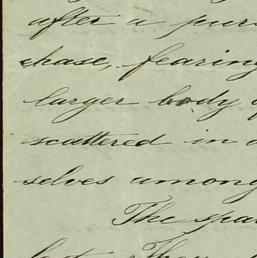 after a
chase, fearing
larger body
scattered in
selves among
The